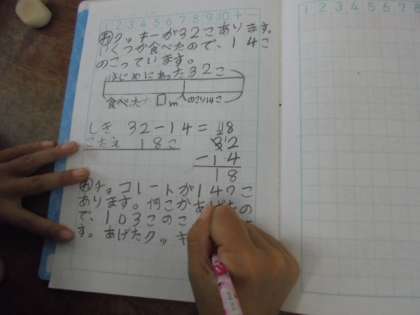 1 2 3 4 5 6 7 8 9 10
あクッキーが32こあります。
いくつか食べたので、14こ
のこっています。
はじめにあった32こ
食べた □ のこり14こ
しき 32-14=18
こたえ 18こ
32
-14
18
あチョコレートが147こ
あります。何こかあげたの
で、103このこ
す。あげたクッキ
1 2 3 4 5 6 7 8